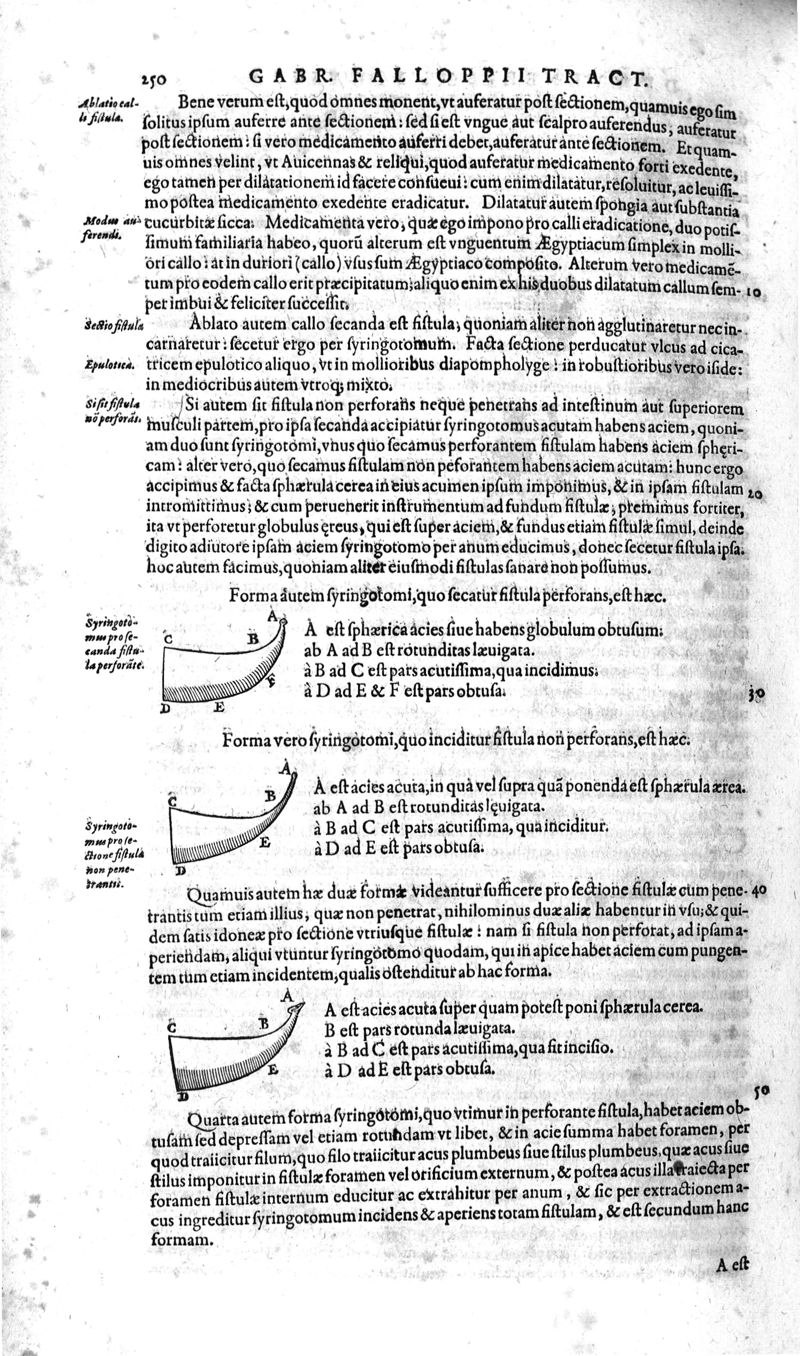 250 GABR. FALLOPPII TRACT.
Ablatio cal-
li fistulæ.
Bene verum est, quod omnes monent, vt auferatur post sectionem, quamuis ego sim
solitus ipsum auferre ante sectionem: sed si est vngue aut scalpro auferendus, auferatur
post sectionem: si vero medicamento auferri debet, auferatur ante sectionem. Et quam-
uis omnes velint, vt Auicennas & reliqui, quod auferatur medicamento forti exedente,
ego tamen per dilatationem id facere consueui: cum enim dilatatur, resoluitur, ac leuissi-
mo postea medicamento exedente eradicatur. Dilatatur autem spongia aut substantia
Modus au-
ferendi.
cucurbitæ sicca: Medicamenta vero, quæ ego impono pro calli eradicatione, duo potis-
simum familiaria habeo, quorũ alterum est vnguentum Ægyptiacum simplex in molli-
ori callo: at in duriori (callo) vsus sum Ægyptiaco composito. Alterum vero medicamẽ-
tum pro eodem callo erit præcipitatum; aliquo enim ex his duobus dilatatum callum sem- 10
per imbui & feliciter successit.
Sectio fistulæ
Ablato autem callo secanda est fistula, quoniam aliter non agglutinaretur nec in-
carnaretur: secetur ergo per syringotomum. Facta sectione perducatur vlcus ad cica-
Epulotica.
tricem epulotico aliquo, vt in mollioribus diapompholyge: in robustioribus vero iside:
in mediocribus autem vtroq; mixto.
Si sit fistula
nõ perforãs.
Si autem sit fistula non perforans neque penetrans ad intestinum aut superiorem
musculi partem, pro ipsa secanda accipiatur syringotomus acutam habens aciem, quoni-
am duo sunt syringotomi, vnus quo secamus perforantem fistulam habens aciem sphęri-
cam: alter vero, quo secamus fistulam non peforantem habens aciem acutam: hunc ergo
accipimus & facta sphærula cerea in eius acumen ipsum imponimus, & in ipsam fistulam 20
intromittimus; & cum peruenerit instrumentum ad fundum fistulæ, premimus fortiter,
ita vt perforetur globulus ęreus, qui est super aciem, & fundus etiam fistulæ simul, deinde
digito adiutore ipsam aciem syringotomo per anum educimus, donec secetur fistula ipsa.
hoc autem facimus, quoniam aliter eiusmodi fistulas sanare non possumus.
Forma autem syringotomi, quo secatur fistula perforans, est hæc.
Syringoto-
mus pro se-
canda fistu-
la perforãte.
A
C
B
F
D
E
A est sphærica acies siue habens globulum obtusum.
ab A ad B est rotunditas læuigata.
à B ad C est pars acutissima, qua incidimus.
à D ad E & F est pars obtusa. 30
Forma vero syringotomi, quo inciditur fistula non perforans, est hæc.
Syringoto-
mus pro se-
ctione fistulæ
non pene-
trantis.
A
C
B
E
D
A est acies acuta, in qua vel supra quã ponenda est sphærula ærea.
ab A ad B est rotunditas lęuigata.
à B ad C est pars acutissima, qua inciditur.
à D ad E est pars obtusa.
Quamuis autem hæ duæ formæ videantur sufficere pro sectione fistulæ cum pene- 40
trantis tum etiam illius, quæ non penetrat, nihilominus duæ aliæ habentur in vsu; & qui-
dem satis idoneæ pro sectione vtriusque fistulæ: nam si fistula non perforat, ad ipsam a-
periendam, aliqui vtuntur syringotomo quodam, qui in apice habet aciem cum pungen-
tem tum etiam incidentem, qualis ostenditur ab hac forma.
A
C
B
E
D
A est acies acuta super quam potest poni sphærula cerea.
B est pars rotunda læuigata.
à B ad C est pars acutissima, qua sit incisio.
à D ad E est pars obtusa.
50
Quarta autem forma syringotomi, quo vtimur in perforante fistula, habet aciem ob-
tusam sed depressam vel etiam rotundam vt libet, & in acie summa habet foramen, per
quod traiicitur filum, quo filo traiicitur acus plumbeus siue stilus plumbeus, quæ acus siue
stilus imponitur in fistulæ foramen vel orificium externum, & postea acus illa traiecta per
foramen fistulæ internum educitur ac extrahitur per anum, & sic per extractionem a-
cus ingreditur syringotomum incidens & aperiens totam fistulam, & est secundum hanc
formam.
A est